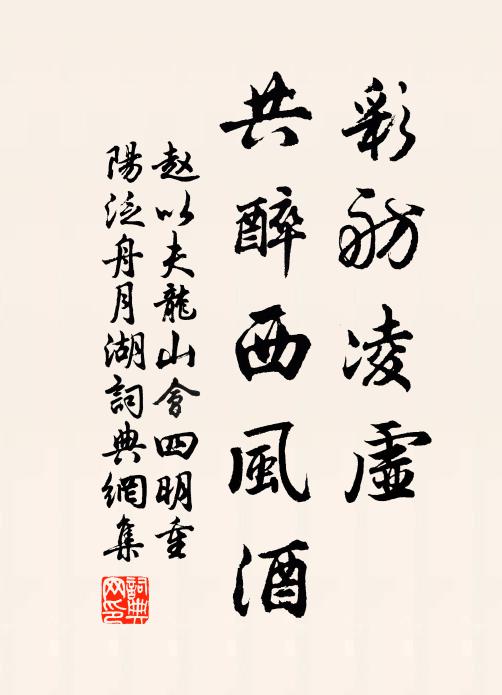 彩舫凌虛
共醉西風酒
赵以夫龍山會四明重
陽泛舟月湖詞典網集
詞典网印